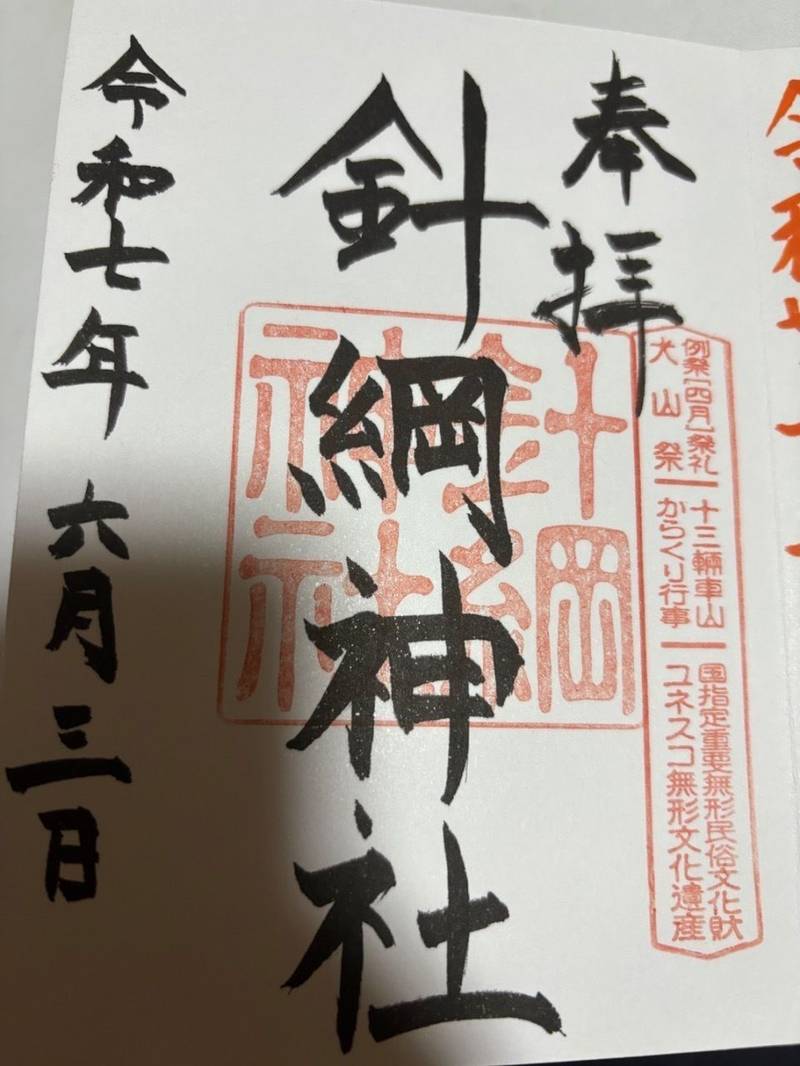 奉拝
例祭[四月]祭礼
犬山祭
十三輛車山
からくり行事
国指定重要無形民俗文化財
ユネスコ無形文化遺産
針綱神社
針綱
神社
令和七年 六月三日